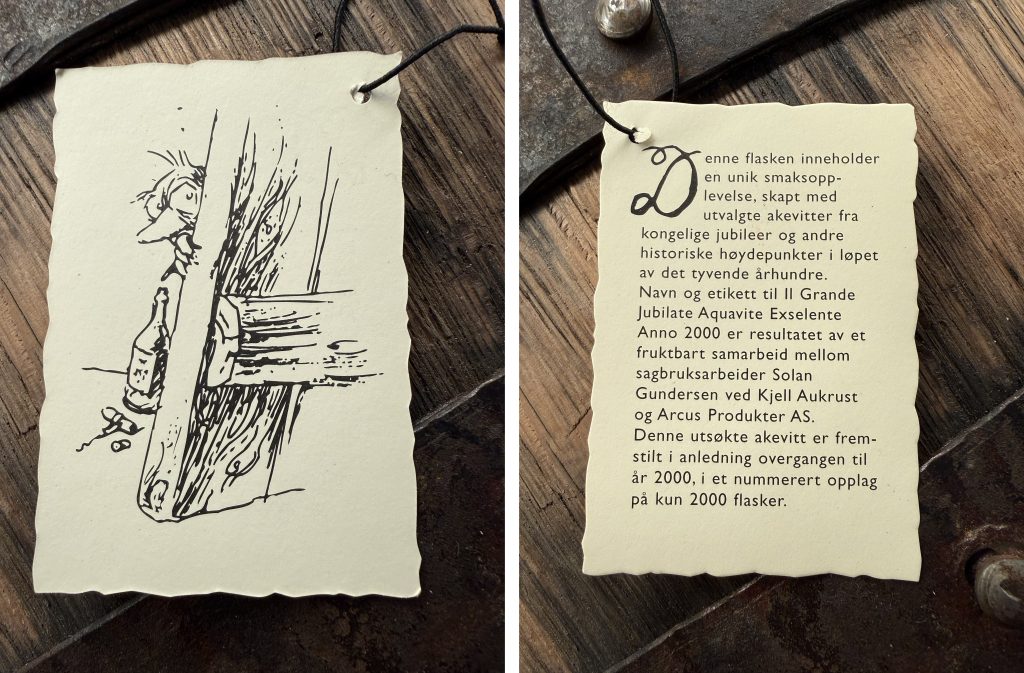 Denne flasken inneholder
en unik smaksopp-
levelse, skapt med
utvalgte akevitter fra
kongelige jubileer og andre
historiske høydepunkter i løpet
av det tyvende århundre.
Navn og etikett til Il Grande
Jubilate Aquavite Exselente
Anno 2000 er resultatet av et
fruktbart samarbeid mellom
sagbruksarbeider Solan
Gundersen ved Kjell Aukrust
og Arcus Produkter AS.
Denne utsøkte akevitt er frem-
stilt i anledning overgangen til
år 2000, i et nummerert opplag
på kun 2000 flasker.